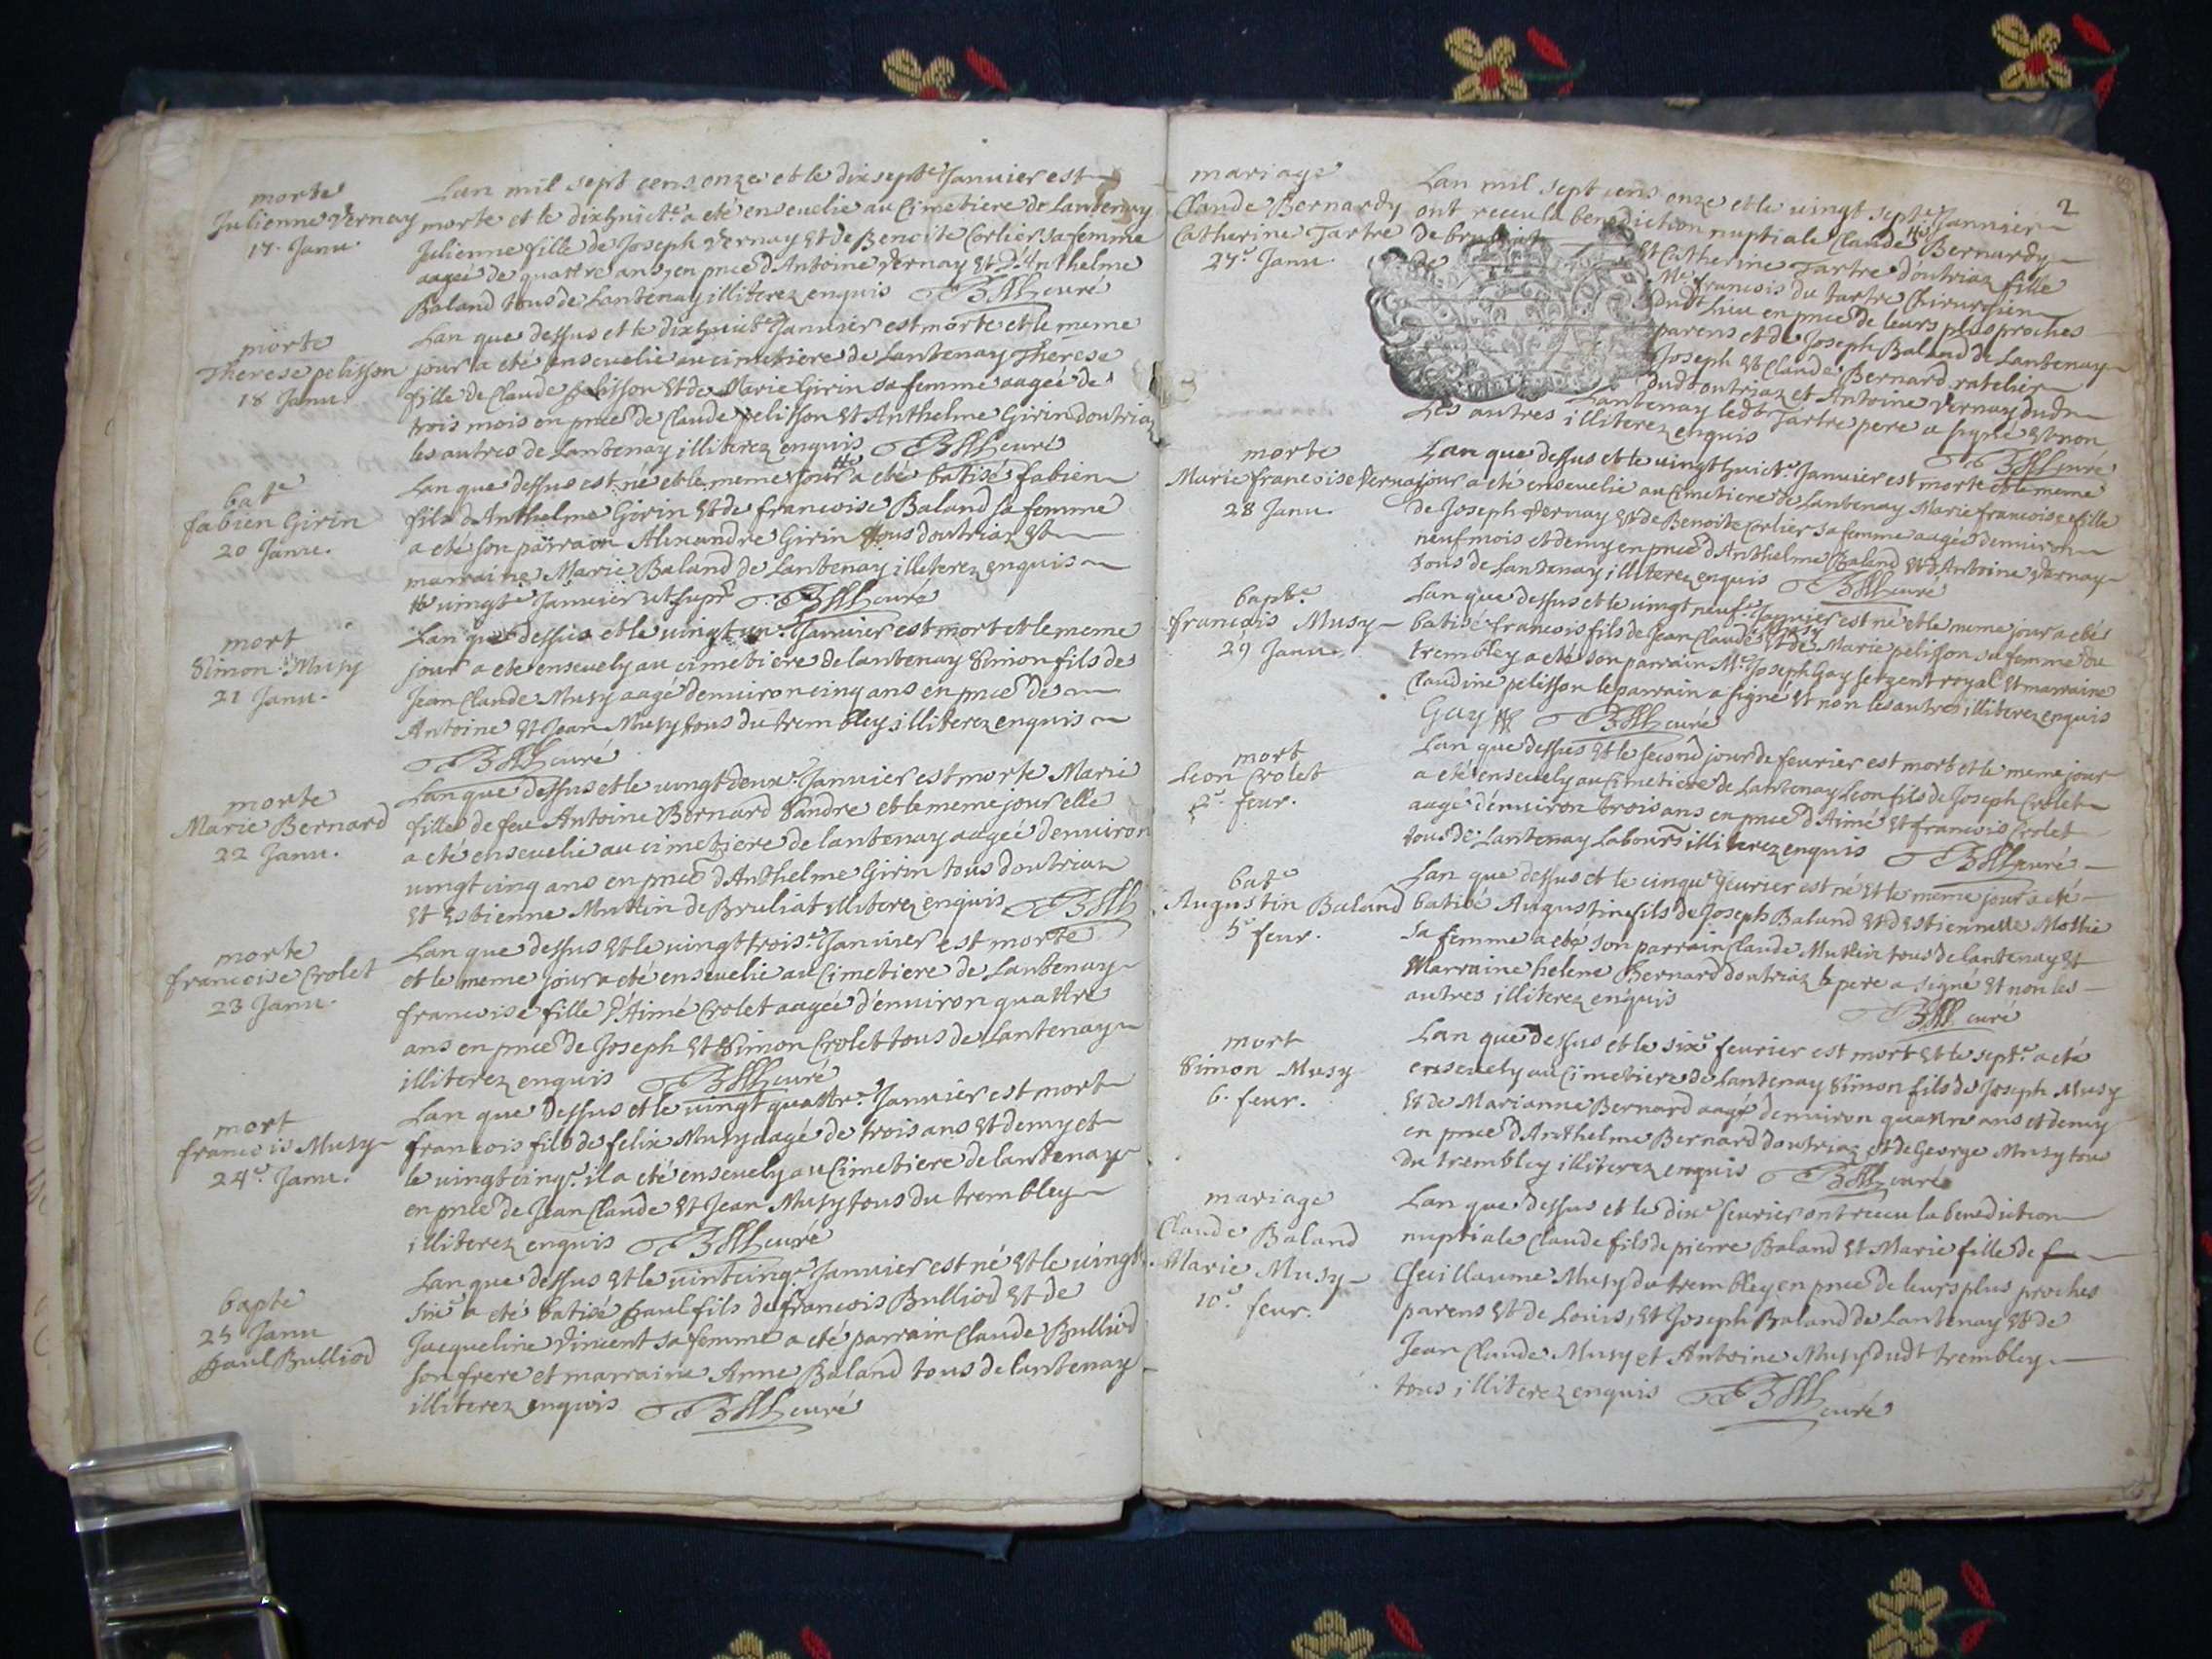 morte
Julienne Vernay
17. Janu.
Lan mil sept cens onze et le dixsept.e Januier est
morte et le dixhuict.e a eté enseuelie au Cimetiere de Lantenay
Julienne fille de Joseph Vernay et de Benoite Corlier sa femme
aagée de quattre ans, en pnce d'Antoine Vernay et d'Anthelme
Baland tous de Lantenay illiterez enquis curé
morte
Therese pelisson
18 Janu.
Lan que dessus et le dixhuict.e Januier est morte et le meme
jour a eté enseuelie au cimetiere de Lantenay Therese
fille de Claude pelisson et de Marie Girin sa femme aagée de
trois mois en pnce de Claude pelisson et Anthelme Girin doutriaz
les autres de Lantenay illiterez enquis curé
bat.e
fabien Girin
20 Janu.
Lan que dessus est né et le meme jour a eté batisé fabien
fils d'Anthelme Girin et de francoise Baland sa femme
a eté son parrain Alexandre Girin tous doutriaz et
marraine Marie Baland de Lantenay illiterez enquis
vingt.e Januier ut supr. curé
mort
Simon Musy
21 Janu.
Lan que dessus et le uingt un.e Januier est mort et le meme
jour a eté enseuely au cimetiere de lantenay Simon fils de
Jean Claude Musy aagé denuiron cinq ans en pnce de
Antoine et Jean Musy tous du trembley illiterez enquis
curé
morte
Marie Bernard
22 Janu.
Lan que dessus et le uingt deux.e Januier est morte Marie
fille de feu Antoine Bernard et le meme jour elle
a eté enseuelie au cimetiere de lantenay aagée denuiron
uingt cinq ans en pnce d'Anthelme Girin tous doutriaz
et Estienne de Bruliat illiterez enquis
morte
francoise Crolet
23 Janu.
Lan que dessus et le uingt trois.e Januier est morte
et le meme jour a eté enseuelie au Cimetiere de Lantenay
francoise fille d'Aimé Crolet aagée d'enuiron quattre
ans en pnce de Joseph et Simon Crolet tous de Lantenay
illiterez enquis curé
mort
francois Musy
24.e Janu.
Lan que dessus et le uingt quattr.e Januier est mort
francois fils de felix Musy aagé de trois ans et demy et
le uingt cinq.e il a eté enseuely au Cimetiere de lantenay
en pnce de Jean Claude et Jean Musy tous du trembley
illiterez enquis curé
bapte
25 Janu
paul Bulliod
Lan que dessus et le uint cinq.e Januier est né et le uingt
six.e a eté batisé paul fils de francois Bulliod et de
Jacqueline Vincent sa femme a eté parrain Claude Bulliod
son frere et marraine Anne Baland tous de lantenay
illiterez enquis curé
2
mariage
Claude Bernardy
Catherine Tartre
27.e Janu.
Lan mil sept cens onze et le uingt sept.e Januier
ont receu la benediction nuptiale Claude Bernardy
de et Catherine Tartre doutriaz fille
de M.e francois du tartre Chirurgien
dudt Lieu en pnce de leurs plus proches
parens et de Joseph Baland de Lantenay
Joseph et Claude Bernard ratelier
dudt outriaz et Antoine Vernay dudt
Lantenay ledt Tartre pere a signé et non
Les autres illiterez enquis curé
morte
Marie francoise Vernay
28 Janu.
Lan que dessus et le uingt huict.e Januier est morte et le meme
jour a eté enseuelie au Cimetiere de Lantenay Marie francoise fille
de Joseph Vernay et de Benoite Corlier sa femme aagée denuiron
neuf mois et demy en pnce d'Anthelme Baland et d'Antoine Vernay
tous de Lantenay illiterez enquis curé
bapt.e
francois Musy
29 Janu.
Lan que dessus et le uingt neuf.e Januier est né et le meme jour a eté
batisé francois fils de Jean Claude et de Marie pelisson sa femme du
trembley a eté son parrain M.e Joseph Gay sergent royal et marraine
Claudine pelisson le parrain a signé et non les autres illiterez enquis
Gay curé
mort
Leon Crolet
2.e feur.
Lan que dessus et le second jour de feurier est mort et le meme jour
a eté enseuely au Cimetiere de Lantenay Leon fils de Joseph Crolet
aagé d'enuiron trois ans en pnce d'Aimé et francois Crolet
tous de Lantenay Labours illiterez enquis curé
bat.e
Augustin Baland
5.e feur.
Lan que dessus et le cinqu.e feurier est né et le meme jour a eté
batisé Augustin fils de Joseph Baland et d'Estiennette Mathie
sa femme a eté son parrain Claude tous de lantenay et
Marraine helene Bernard doutriaz le pere a signé et non les
autres illiterez enquis curé
mort
Simon Musy
6. feur.
Lan que dessus et le six.e feurier est mort et le sept.e a eté
enseuely au Cimetiere de Lantenay Simon fils de Joseph Musy
et de Marianne Bernard aagé denuiron quattre ans et demy
en pnce d'Anthelme Bernard doutriaz et de George Musy tous
du trembley illiterez enquis curé
mariage
Claude Baland
Marie Musy
10.e feur.
Lan que dessus et le dix.e feurier ont receu la benediction
nuptiale Claude fils de pierre Baland et Marie fille de f
Guillaume Musy du trembley en pnce de leurs plus proches
parens et de Louis, et Joseph Baland de Lantenay et de
Jean Claude Musy et Antoine Musy dudt trembley
tous illiterez enquis curé